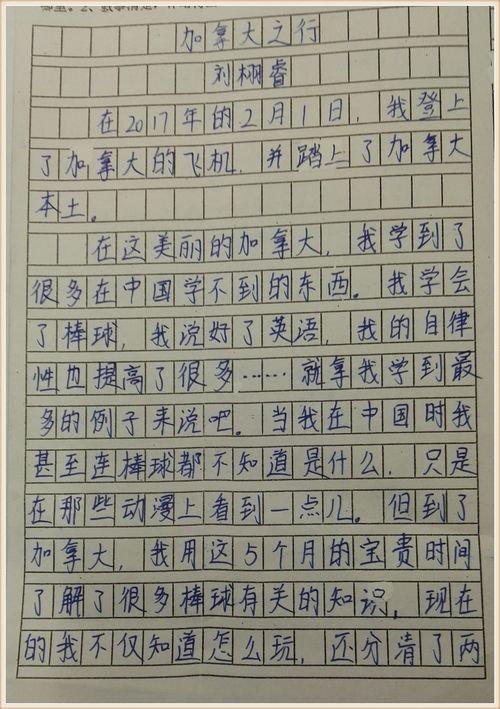 加拿大之行
刘栩睿
在2017年的2月1日，我登上
了加拿大的飞机，并踏上了加拿大
本土。
在这美丽的加拿大，我学到了
很多在中国学不到的东西。我学会
了棒球，我说好了英语，我的自律
性也提高了很多……就拿我学到最
多的例子来说吧。当我在中国时我
甚至连棒球都不知道是什么，只是
在那些动漫上看到一点儿。但到了
加拿大，我用这5个月的宝贵时间
了解了很多棒球有关的知识，现在
的我不仅知道怎么玩，还分清了两